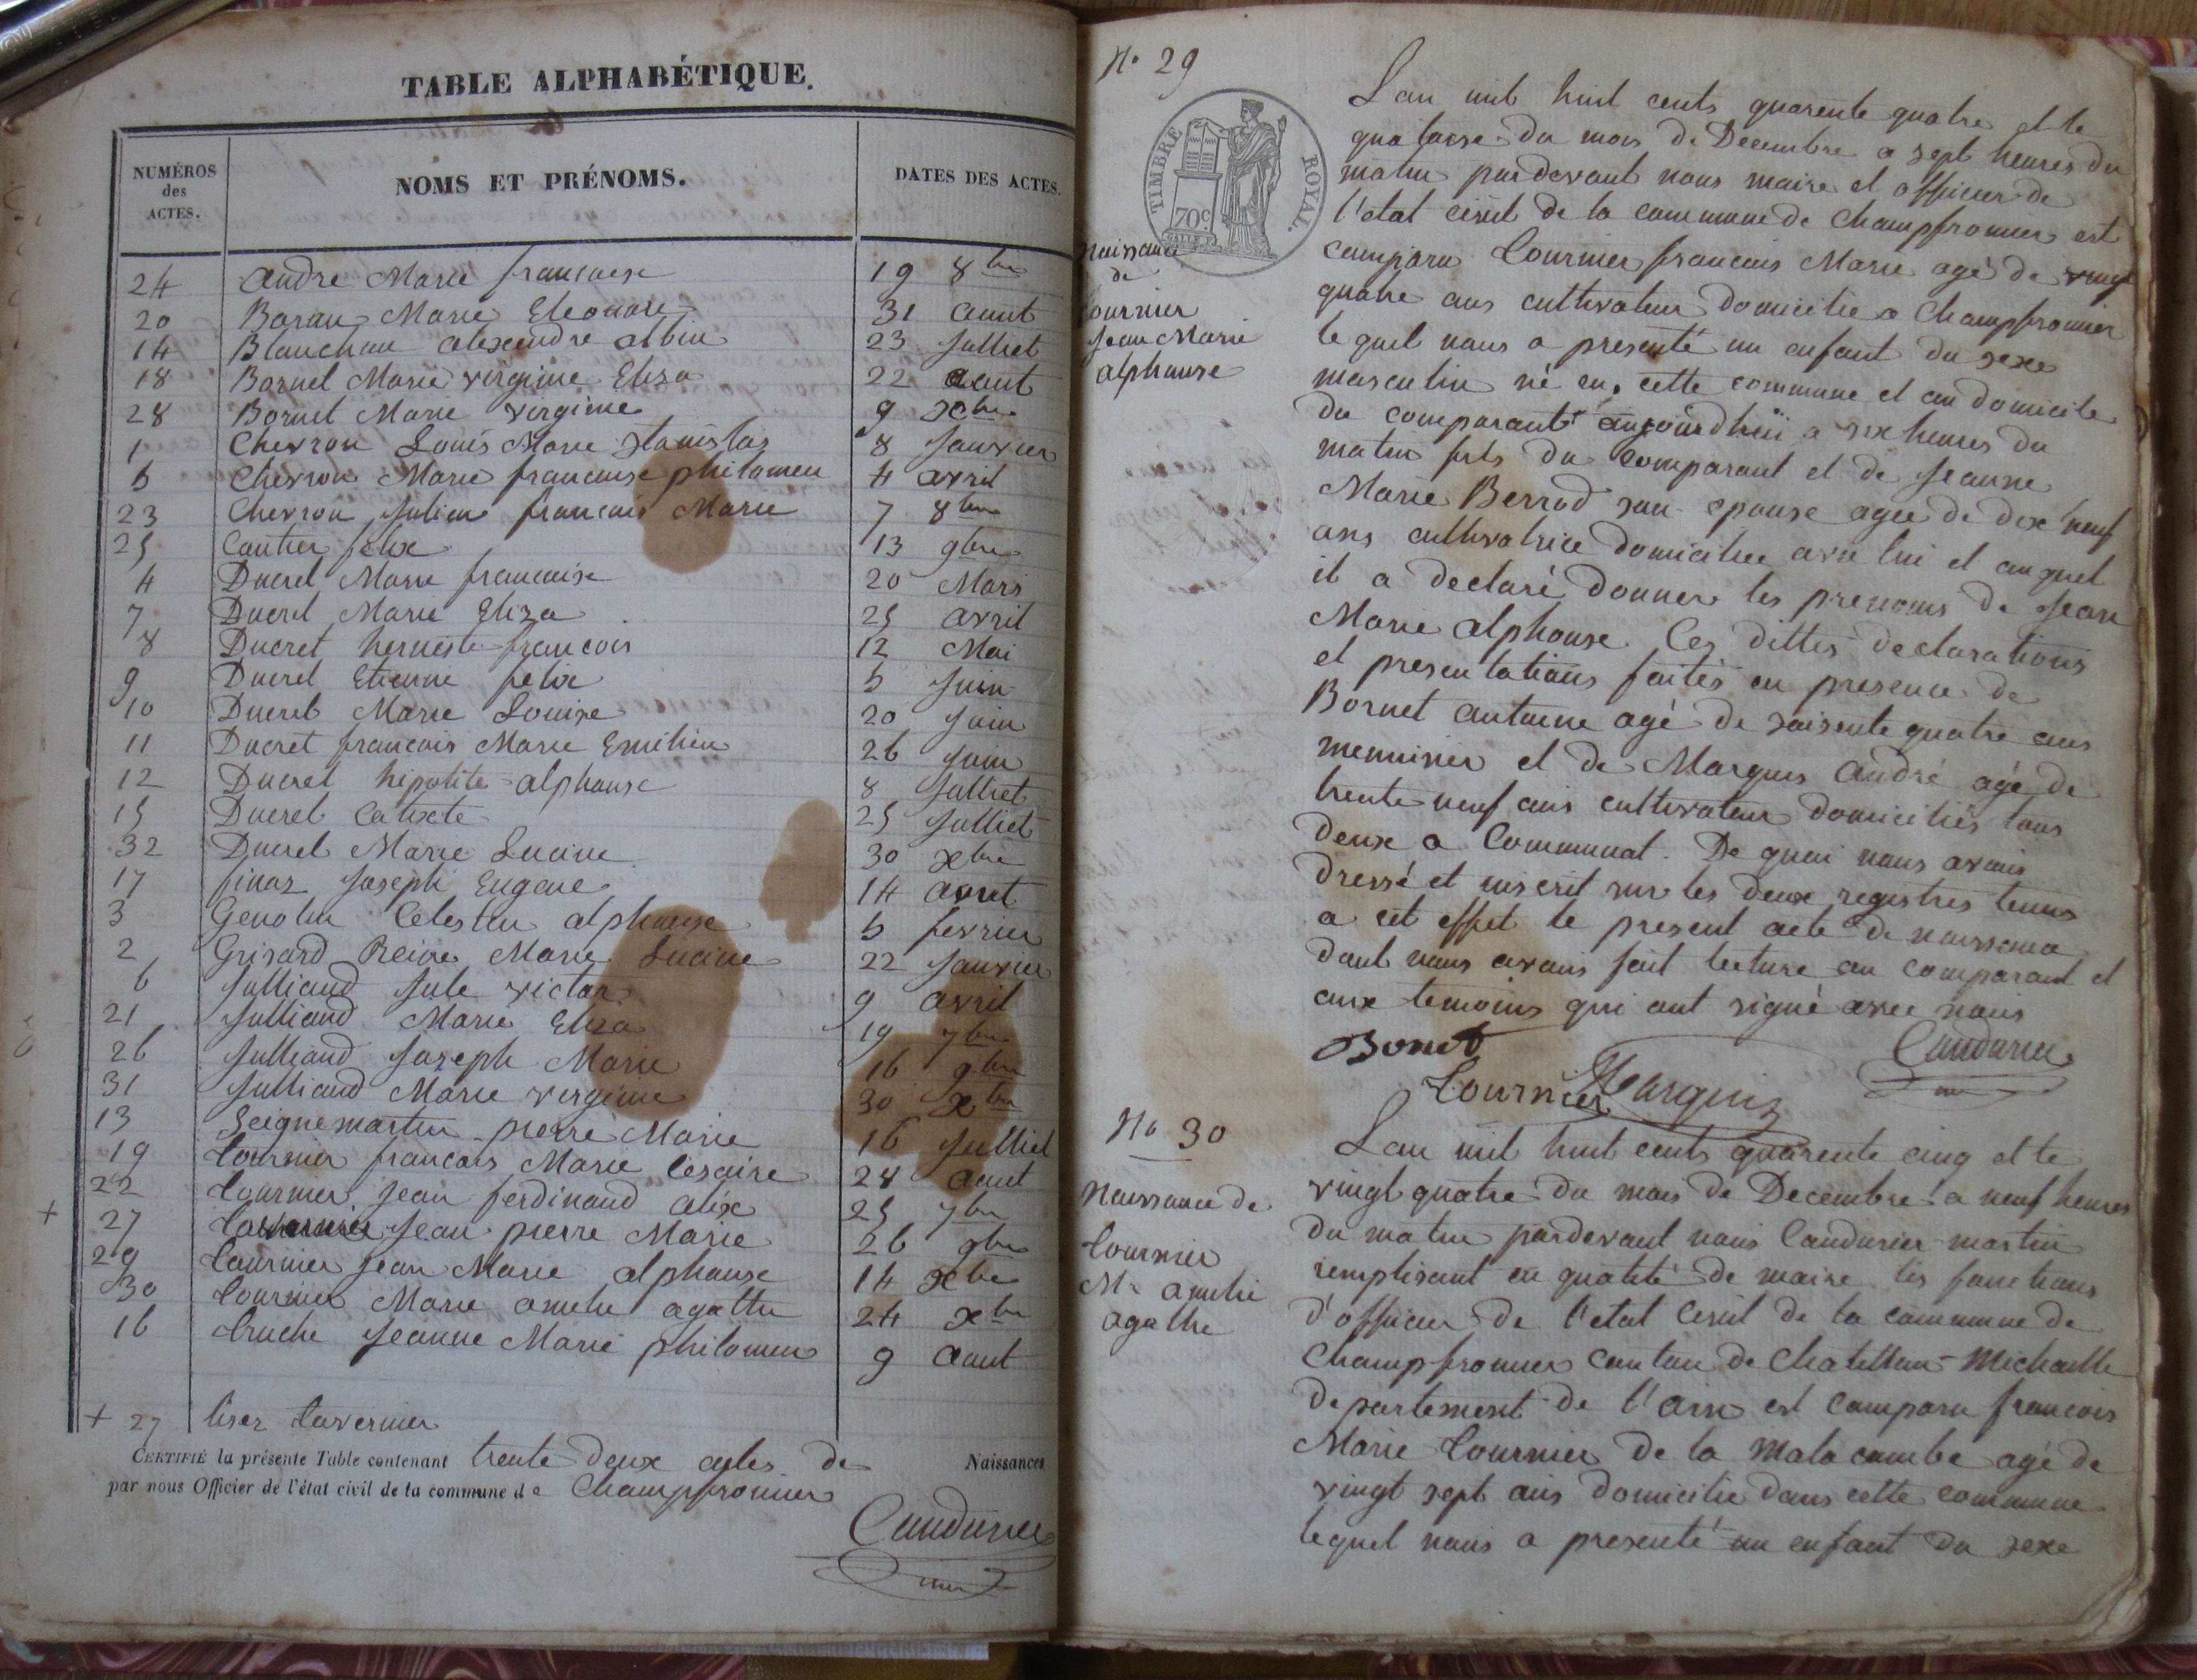 TABLE ALPHABÉTIQUE.
NUMÉROS des ACTES. NOMS ET PRÉNOMS. DATES DES ACTES.
24 andre Marie francoise 19 8bre
20 Marie Eleonore 31 aout
14 Blanchau alexendre albin 23 Julliet
18 Bornet Marie virginie Eliza 22 aout
28 Bornet Marie virginie 9 xbre
1 Chevron Louis Marie Stanislas 8 Janvier
5 Chevron Marie francoise philomen 4 avril
23 Chevron Julien francois Marie 7 8bre
25 Coutier felix 13 9bre
4 Ducret Marie francoise 20 Mars
7 Ducret Marie Eliza 25 avril
8 Ducret herneste francois 12 Mai
9 Ducret Etienne felix 5 Juin
10 Ducret Marie Louise 20 Juin
11 Ducret francois Marie Emilien 26 Juin
12 Ducret hipolite alphonse 8 Julliet
15 Ducret Calixte 25 Julliet
32 Ducret Marie Lucine 30 xbre
17 finaz Joseph Eugene 14 aout
3 Genolin Celestin alphonse 5 fevrier
2 Grisard Reine Marie Lucine 22 Janvier
6 Julliand Jule victor 9 avril
21 Julliand Marie Eliza 19 7bre
26 Julliand Joseph Marie 16 9bre
31 Julliand Marie virginie 30 xbre
13 Seignemartin pierre Marie 16 Julliet
19 tournier francois Marie Cesaire 28 aout
22 tournier Jean ferdinand alix 25 7bre
+ 27 Jean pierre Marie 26 9bre
29 tournier Jean Marie alphonse 14 xbre
30 tournier Marie amelie agathe 24 xbre
16 truche Jeanne Marie philomen 9 aout
+ 27 lisez tavernier
CERTIFIÉ la présente Table contenant trente deux actes de Naissances
par nous Officier de l'état civil de la commune de Champfromier
Coudurier
No 29
TIMBRE ROYAL.
70c
naissance
de
tournier
Jean Marie
alphonse
L an mil huit cents quarente quatre et le
quatorse du mois de Decembre a sept heures du
matin pardevant nous maire et officier de
l'etat civil de la commune de Champfromier est
comparu tournier francois Marie agé de vingt
quatre ans cultivateur domicilie a Champfromier
lequel nous a presenté un enfant du sexe
masculin né en cette commune et au domicile
du comparant aujourdhui a six heures du
matin fils du comparant et de Jeanne
Marie Berrod son epouse agee de dix neuf
ans cultivatrice domiciliee avec lui et auquel
il a declaré donner les prenoms de Jean
Marie alphonse. Ces dittes declarations
et presentations faites en presence de
Bornet antoine agé de soisente quatre ans
mennisier et de Marquis andré agé de
trente neuf ans cultivateur domiciliés tous
deux a Communal. De quoi nous avons
dressé et inscrit sur les deux registres tenus
a cet effet le present acte de naissance
dont nous avons fait lecture au comparant et
aux temoins qui ont signé avec nous
Bonet
Coudurier
tournier Marquis
No 30
naissance de
tournier
Me amelie
agathe
L an mil huit cents quarente cinq et le
vingt quatre du mois de Decembre a neuf heures
du matin pardevant nous Coudurier martin
remplisant en qualité de maire les fonctions
d'officier de l'etat Civil de la commune de
Champfromier canton de Chatillon-Michaille
departement de l'ain est comparu francois
Marie tournier de la Mala combe agé de
vingt sept ans domicilie dans cette commune
lequel nous a presenté un enfant du sexe